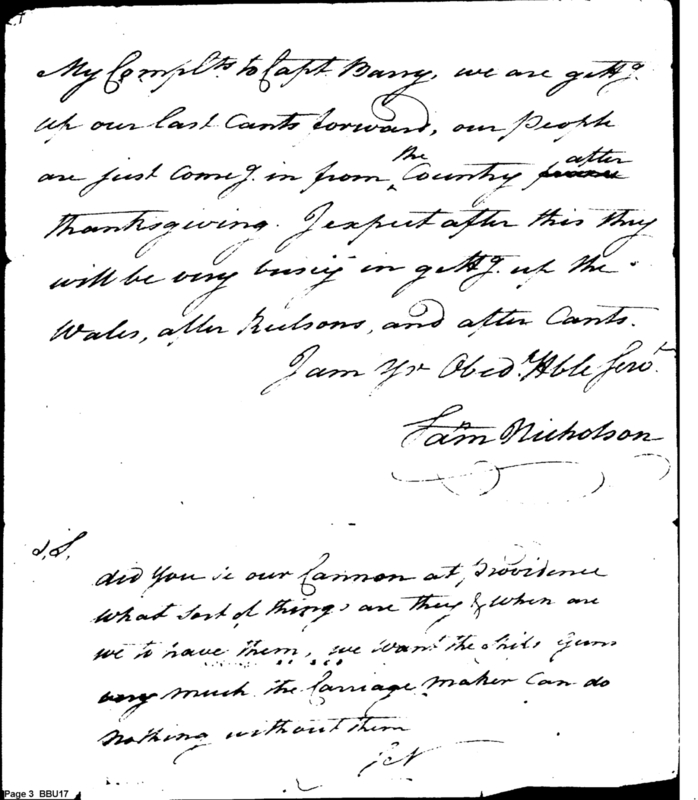 My Complts. to Capt. Barry, we are gettg.
up our last Cants forward, our People
are just Comeg. in from the Country after
thanksgiving. I expect after this they
will be very busiy in gettg. up the
Wales, after Kulsons, and after Cants.
I am Yr Obedt. Hble Servt.
Sam Nicholson
did You se our Cannon at Providence
What Sort of things are they & When are
we to have them, we want the Ships Guns
very much the Carriage maker Can do
nothing without them
SN
Page 3 BBU17